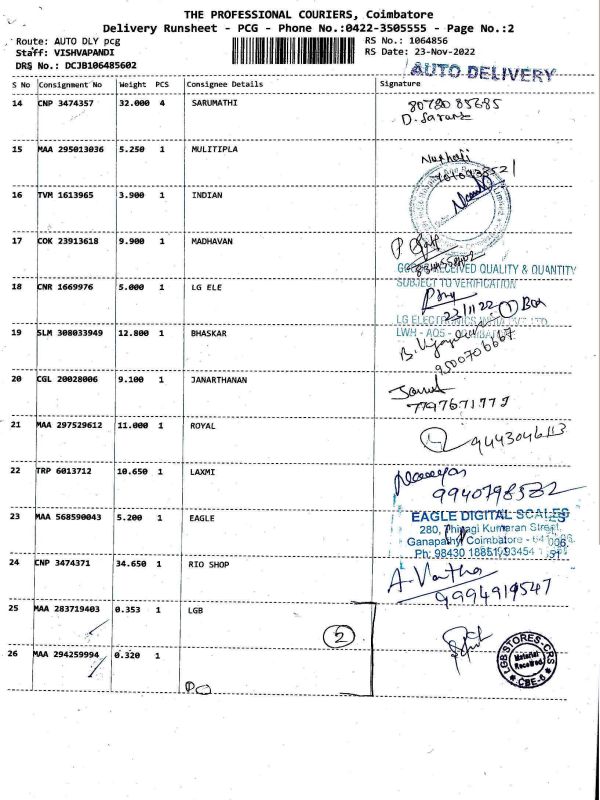 THE PROFESSIONAL COURIERS, Coimbatore
Delivery Runsheet - PCG - Phone No.:0422-3505555 - Page No.:2
Route: AUTO DLY pcg RS No.: 1064856
Staff: VISHVAPANDI RS Date: 23-Nov-2022
DRS No.: DCJB106485602
AUTO DELIVERY
S No Consignment No Weight PCS Consignee Details Signature
14 CNP 3474357 32.000 4 SARUMATHI 8072085685
D. Sarans
15 MAA 295013036 5.250 1 MULITIPLA
16 TVM 1613965 3.900 1 INDIAN
17 COK 23913618 9.900 1 MADHAVAN
GOODS RECEIVED QUALITY & QUANTITY
SUBJECT TO VERIFICATION
18 CNR 1669976 5.000 1 LG ELE
23/11/22 1 Box
LG ELECTRONICS
LWH - AOS -
19 SLM 308033949 12.800 1 BHASKAR
9500706667
20 CGL 20028006 9.100 1 JANARTHANAN
7797671779
21 MAA 297529612 11.000 1 ROYAL
9443046113
22 TRP 6013712 10.650 1 LAXMI
9940798532
23 MAA 568590043 5.200 1 EAGLE
EAGLE DIGITAL SCALES
280, Kumaran Street,
Ganapathy Coimbatore - 641 006.
Ph: 98430 18851, 93454
24 CNP 3474371 34.650 1 RIO SHOP
9994919547
25 MAA 283719403 0.353 1 LGB
2
26 MAA 294259994 0.320 1
LGB STORES-CRS
Material
Received
CBE-6